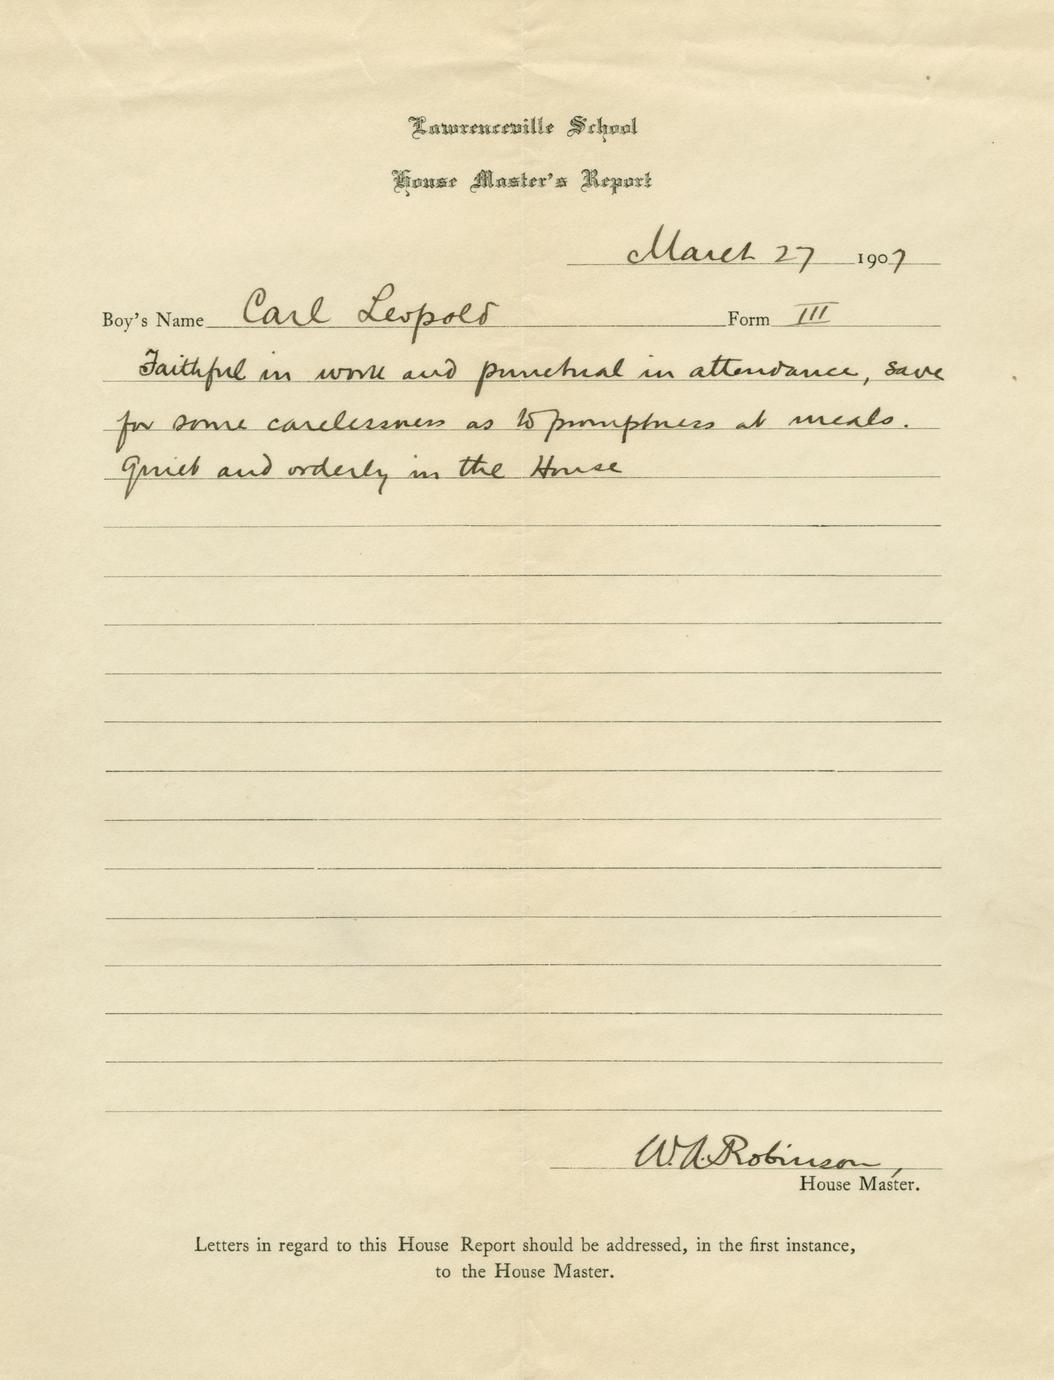 Lawrenceville School
House Master's Report
March 27 1907
Boy's Name Carl Leopold Form III
Faithful in work and punctual in attendance, save
for some carelessness as to promptness at meals.
Quiet and orderly in the House
W. A. Robinson,
House Master.
Letters in regard to this House Report should be addressed, in the first instance,
to the House Master.